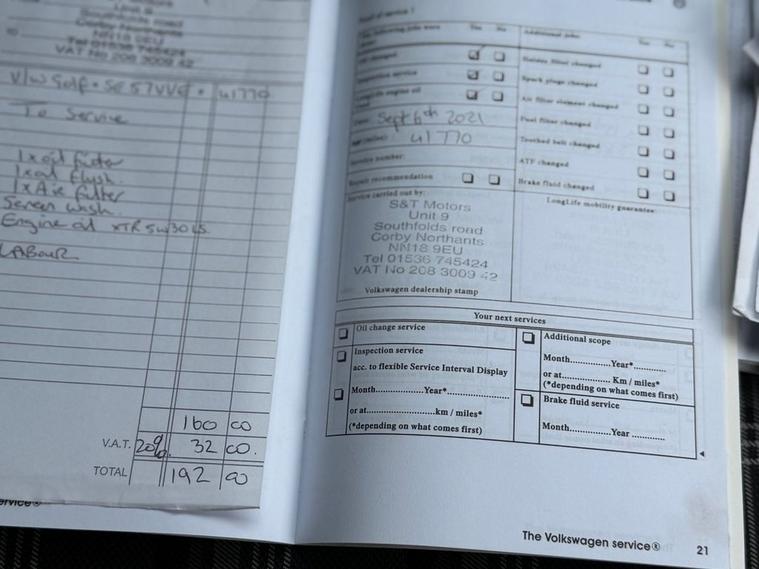 Unit 9
Southfolds road
Corby Northants
NN18 9EU
Tel 01536 745424
VAT No 208 3009 42
V/W Golf • SE57VVG • 41770
To Service
1 x oil filter
1 x oil flush.
1 x Air filter
Screen wash.
Engine oil XTR 5W30 LS
LABOUR
160 00
V.A.T. 20% 32 00.
TOTAL 192 00
service®
Yes No Additional jobs: Yes No
Inspection service
Spark plugs changed
Air filter element changed
Date: Sept 6th 2021
Fuel filter changed
41770
Toothed belt changed
Service number:
ATF changed
Repair recommendation
Brake fluid changed
Service carried out by:
LongLife mobility guarantee:
S&T Motors
Unit 9
Southfolds road
Corby Northants
NN18 9EU
Tel 01536 745424
VAT No 208 3009 42
Volkswagen dealership stamp
Your next services
Oil change service
Inspection service
acc. to flexible Service Interval Display
Month....................Year*...................
or at.......................km / miles*
(*depending on what comes first)
Additional scope
Month..............Year*............
or at................ Km / miles*
(*depending on what comes first)
Brake fluid service
Month..............Year ............
The Volkswagen service® 21